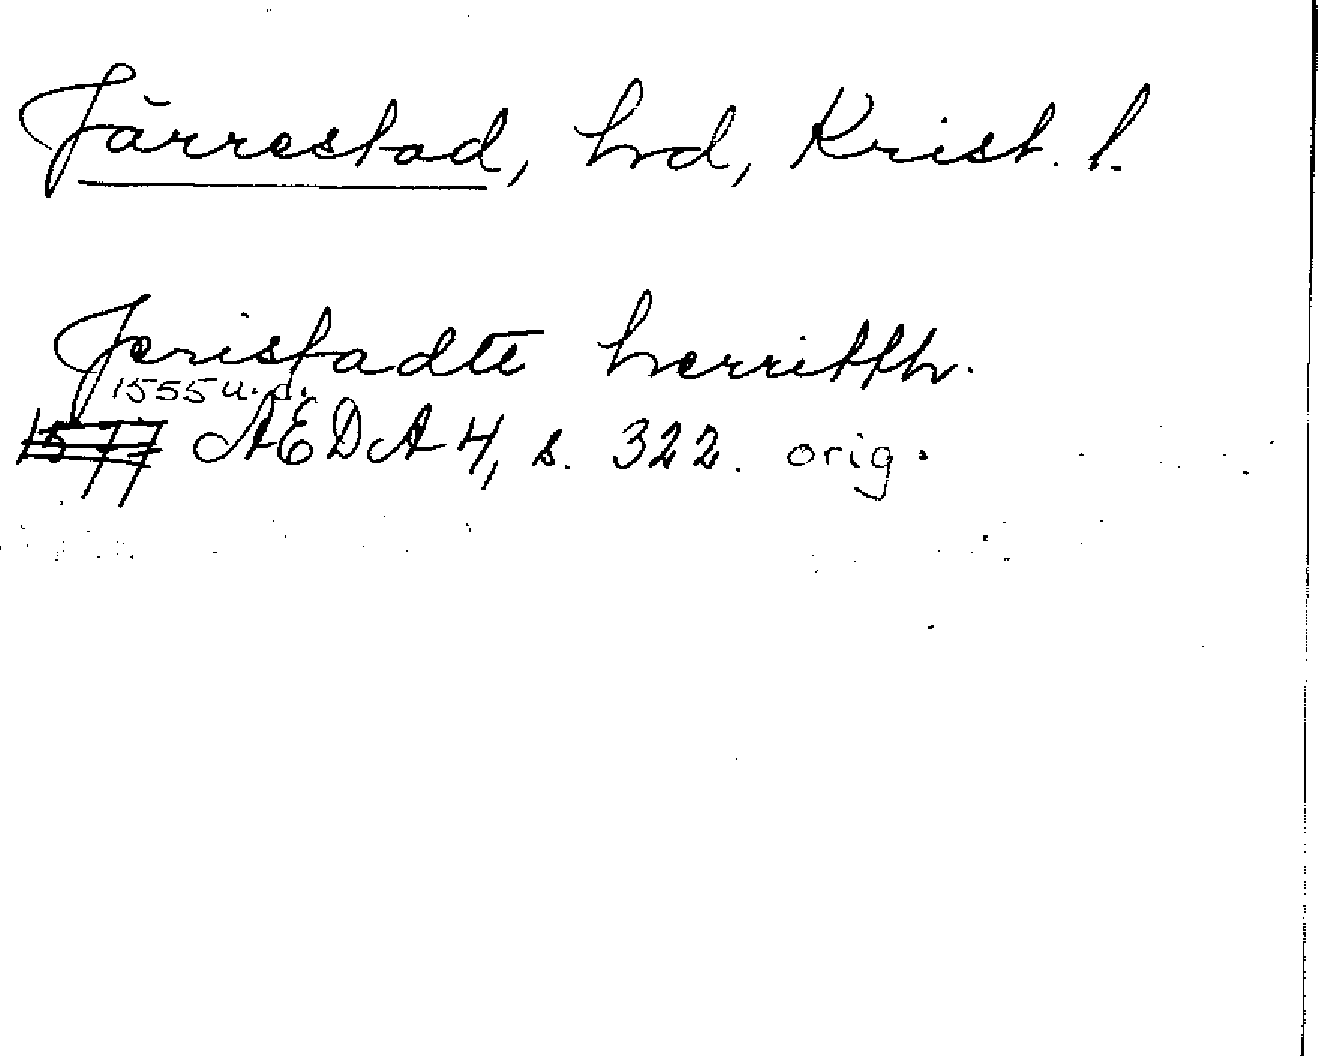 Järrestad, hrd, Krist. l.
Jeristadte herritth.
1555 u. d.
1577 AEDA 4, s. 322. orig.